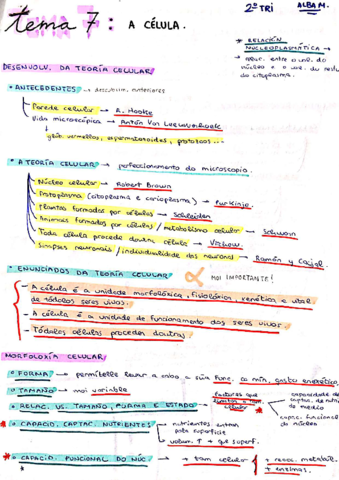 2º TRI
ALBA M.
tema 7: A CÉLULA.
* RELACIÓN
NUCLEOPLASMÁTICA →
relac. entre o vol. do
núcleo e o vol. do resto
do citoplasma.
DESENVOLV. DA TEORÍA CELULAR
• ANTECEDENTES → descubrim. anteriores
Parede celular → R. Hooke
Vida microscópica → Antón Van Leeuwenhoek
↳ glób. vermellos, espermatozoides, protozoos...
• A TEORÍA CELULAR → perfeccionamento do microscopio.
Núcleo celular → Robert Brown
Protoplasma (citoplasma e carioplasma) → Purkinje
Plantas formadas por células → Schleiden
Animais formados por células / metabolismo celular → Schwan
Toda célula procede doutra célula → Virchow
Sinapses neuronais / individualidade das neuronas → Ramón y Cajal
• ENUNCIADOS DA TEORÍA CELULAR MOI IMPORTANTE!
- A célula é a unidade morfolóxica, fisiolóxica, xenética e vital
de tódolos seres vivos.
- A célula é a unidade de funcionamento dos seres vivos.
- Tódalas células proceden doutras.
MORFOLOXÍA CELULAR
• FORMA → permítelle levar a cabo = súa func. co mín. gasto enerxético.
• TAMAÑO → moi variable
• RELAC. VS. TAMAÑO, FORMA E ESTADO → factores que
limitan o tam.
celular
capacidade de
captac. de nutri.
do medio
capac. funcional
do núcleo
* • CAPACID. CAPTAC. NUTRIENTES → nutrientes entran
pola superficie
volum. ↑ + que superf.
* • CAPACID. FUNCIONAL DO NÚC. → + tam celular → + reacc. metaból.
+ enzimas.